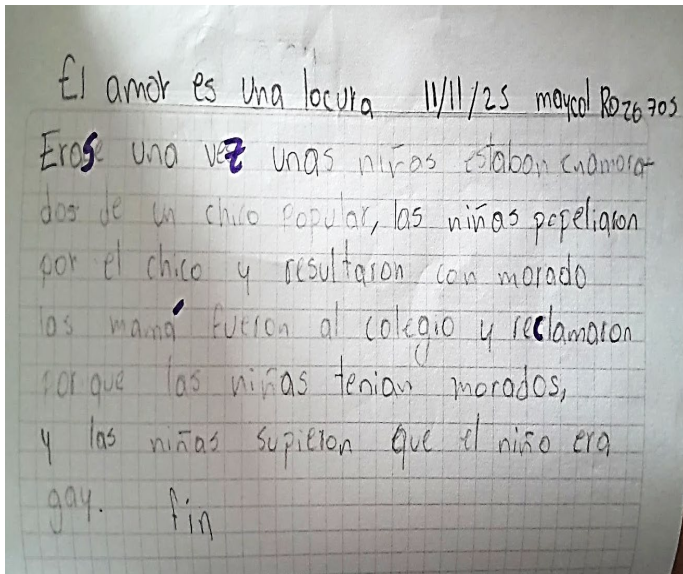 El amor es una locura 11/11/25 maycol Rozo 705
Erase una vez unas niñas estaban enamora-
das de un chico popular, las niñas pepeliaron
por el chico y resultaron con morado
las mamá fueron al colegio y reclamaron
porque las niñas tenian morados,
y las niñas supieron que el niño era
gay. fin